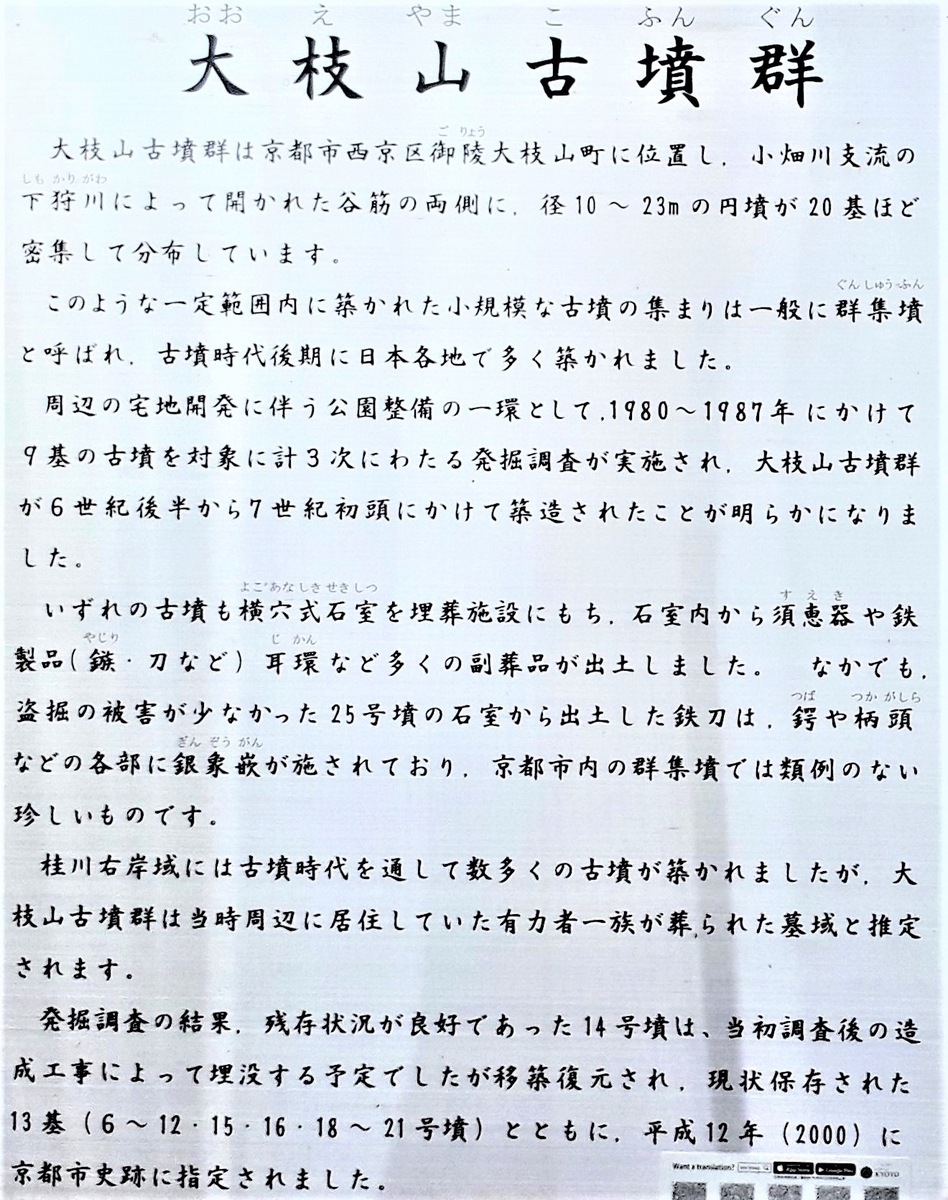 おお え やま こ ふん ぐん
大枝山古墳群
ご りょう
大枝山古墳群は京都市西京区御陵大枝山町に位置し，小畑川支流の
しも かり がわ
下狩川によって開かれた谷筋の両側に，径10～23mの円墳が20基ほど
密集して分布しています。
ぐん しゅう ふん
このような一定範囲内に築かれた小規模な古墳の集まりは一般に群集墳
と呼ばれ，古墳時代後期に日本各地で多く築かれました。
周辺の宅地開発に伴う公園整備の一環として，1980～1987年にかけて
9基の古墳を対象に計3次にわたる発掘調査が実施され，大枝山古墳群
が6世紀後半から7世紀初頭にかけて築造されたことが明らかになりま
した。
よこ あな しき せき しつ す え き
いずれの古墳も横穴式石室を埋葬施設にもち，石室内から須恵器や鉄
やじり じ かん
製品（鏃・刀など）耳環など多くの副葬品が出土しました。 なかでも，
つば つか がしら
盗掘の被害が少なかった25号墳の石室から出土した鉄刀は，鍔や柄頭
ぎん ぞう がん
などの各部に銀象嵌が施されており，京都市内の群集墳では類例のない
珍しいものです。
桂川右岸域には古墳時代を通して数多くの古墳が築かれましたが，大
枝山古墳群は当時周辺に居住していた有力者一族が葬られた墓域と推定
されます。
発掘調査の結果，残存状況が良好であった14号墳は、当初調査後の造
成工事によって埋没する予定でしたが移築復元され，現状保存された
13基（6～12・15・16・18～21号墳）とともに，平成12年（2000）に
京都市史跡に指定されました。
Want a translation?